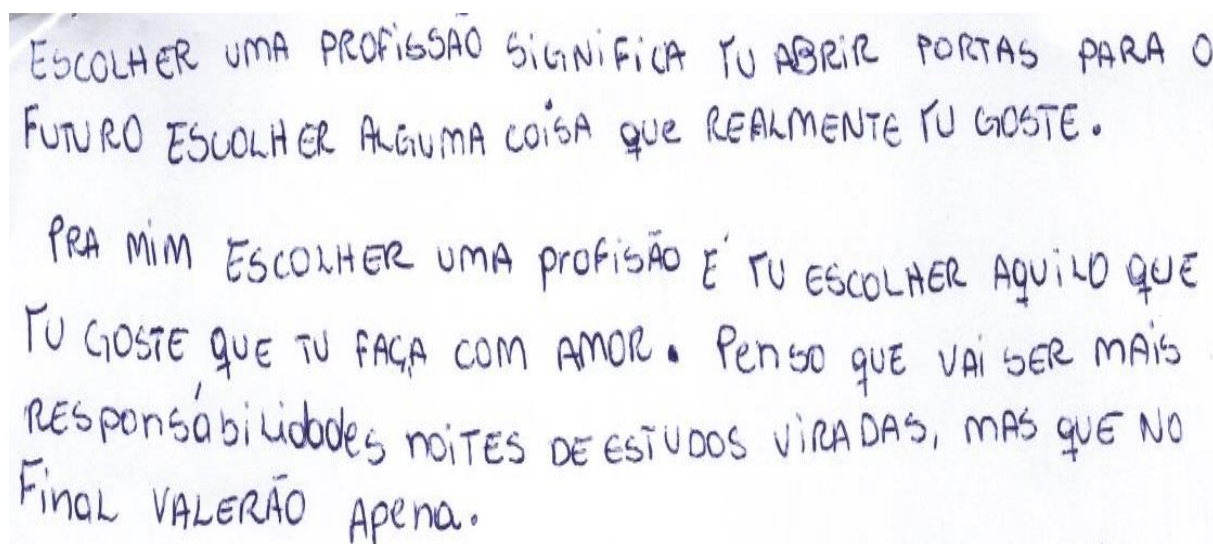 ESCOLHER UMA PROFiSSÃO SiGNiFiCA TU ABRiR PORTAS PARA O
FUTURO ESCOLHER ALGUMA COiSA que REALMENTE TU GOSTE.
PRA MiM ESCOLHER UMA profisÃO É TU ESCOLHER AQUiLO QUE
TU GOSTE QUE TU FAÇA COM AMOR. Penso QUE VAi SER MAiS
RESponsábiLidades NOiTES DE ESTUDOS ViRADAS, MAS QUE NO
FinaL VALERÃO Apena.